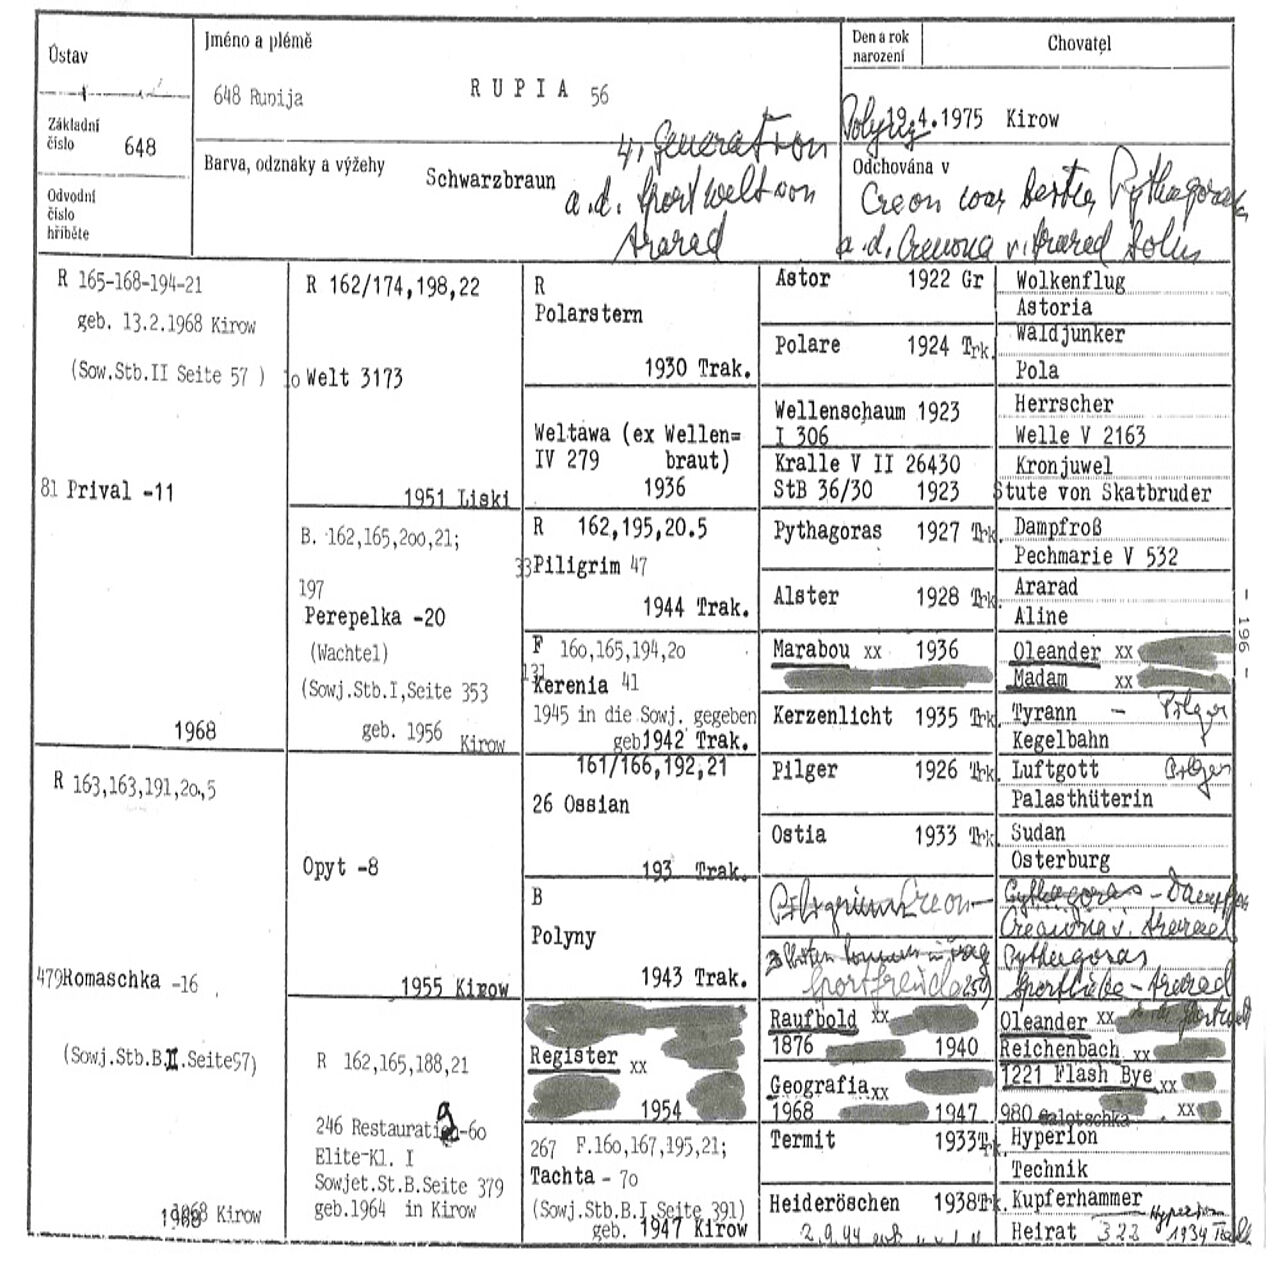 Ústav
Základní
číslo 648
Odvodní
číslo
hříběte
Jméno a plémě
648 Runija
R U P I A 56
Barva, odznaky a výžehy
Schwarzbraun
4. Generation
a.d. Sportwelt von
Ararad
Den a rok
narození
Chovatel
19.4.1975 Kirow
Odchována v
Creon war bester Pythagoras
a.d. Cremona v. Ararad Sohn
R 165-168-194-21
geb. 13.2.1968 Kirow
(Sow.Stb.II Seite 57 )
81 Prival -11
1968
R 163,163,191,20,5
479 Romaschka -16
(Sowj.Stb.B.II.Seite97)
1968 Kirow
R 162/174,198,22
10 Welt 3173
1951 Liski
B. 162,165,200,21;
197
Perepelka -20
(Wachtel)
(Sowj.Stb.I,Seite 353
geb. 1956 Kirow
Opyt -8
1955 Kirow
R 162,165,188,21
246 Restauratia-60
Elite-Kl. I
Sowjet.St.B.Seite 379
geb.1964 in Kirow
R
Polarstern
1930 Trak.
Weltawa (ex Wellen=
IV 279 braut)
1936
R 162,195,20.5
33 Piligrim 47
1944 Trak.
F 160,165,194,20
131
Kerenia 41
1945 in die Sowj. gegeben
geb 1942 Trak.
161/166,192,21
26 Ossian
193 Trak.
B
Polyny
1943 Trak.
Register xx
1954
267 F.160,167,195,21;
Tachta - 70
(Sowj.Stb.B.I,Seite 391)
geb. 1947 Kirow
Astor 1922 Gr
Polare 1924 Trk.
Wellenschaum 1923
I 306
Kralle V II 26430
StB 36/30 1923
Pythagoras 1927 Trk.
Alster 1928 Trk.
Marabou xx 1936
Kerzenlicht 1935 Trk.
Pilger 1926 Trk.
Ostia 1933 Trk.
Creon
Sportfreude
Raufbold xx
1876 1940
Geografia xx
1968 1947
Termit 1933 Trk.
Heideröschen 1938 Trk.
2.9.44
Wolkenflug
Astoria
Waldjunker
Pola
Herrscher
Welle V 2163
Kronjuwel
Stute von Skatbruder
Dampfroß
Pechmarie V 532
Ararad
Aline
Oleander xx
Madam xx
Tyrann - Pilger
Kegelbahn
Luftgott Pilger
Palasthüterin
Sudan
Osterburg
Pythagoras -
Cremona v. Ararad
Pythagoras
Sportliebe - Ararad
Oleander xx
Reichenbach xx
1221 Flash Bye xx
980 Galotschka . xx
Hyperion
Technik
Kupferhammer
Heirat 322 Hyperion 1934
- 196 -